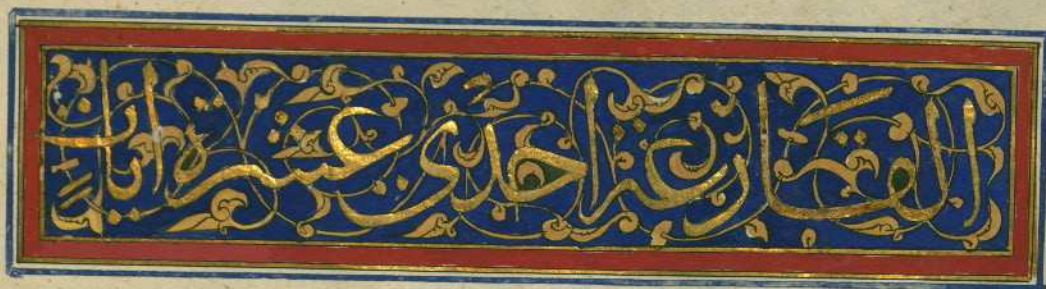 القارعة احدى عشرة ايات